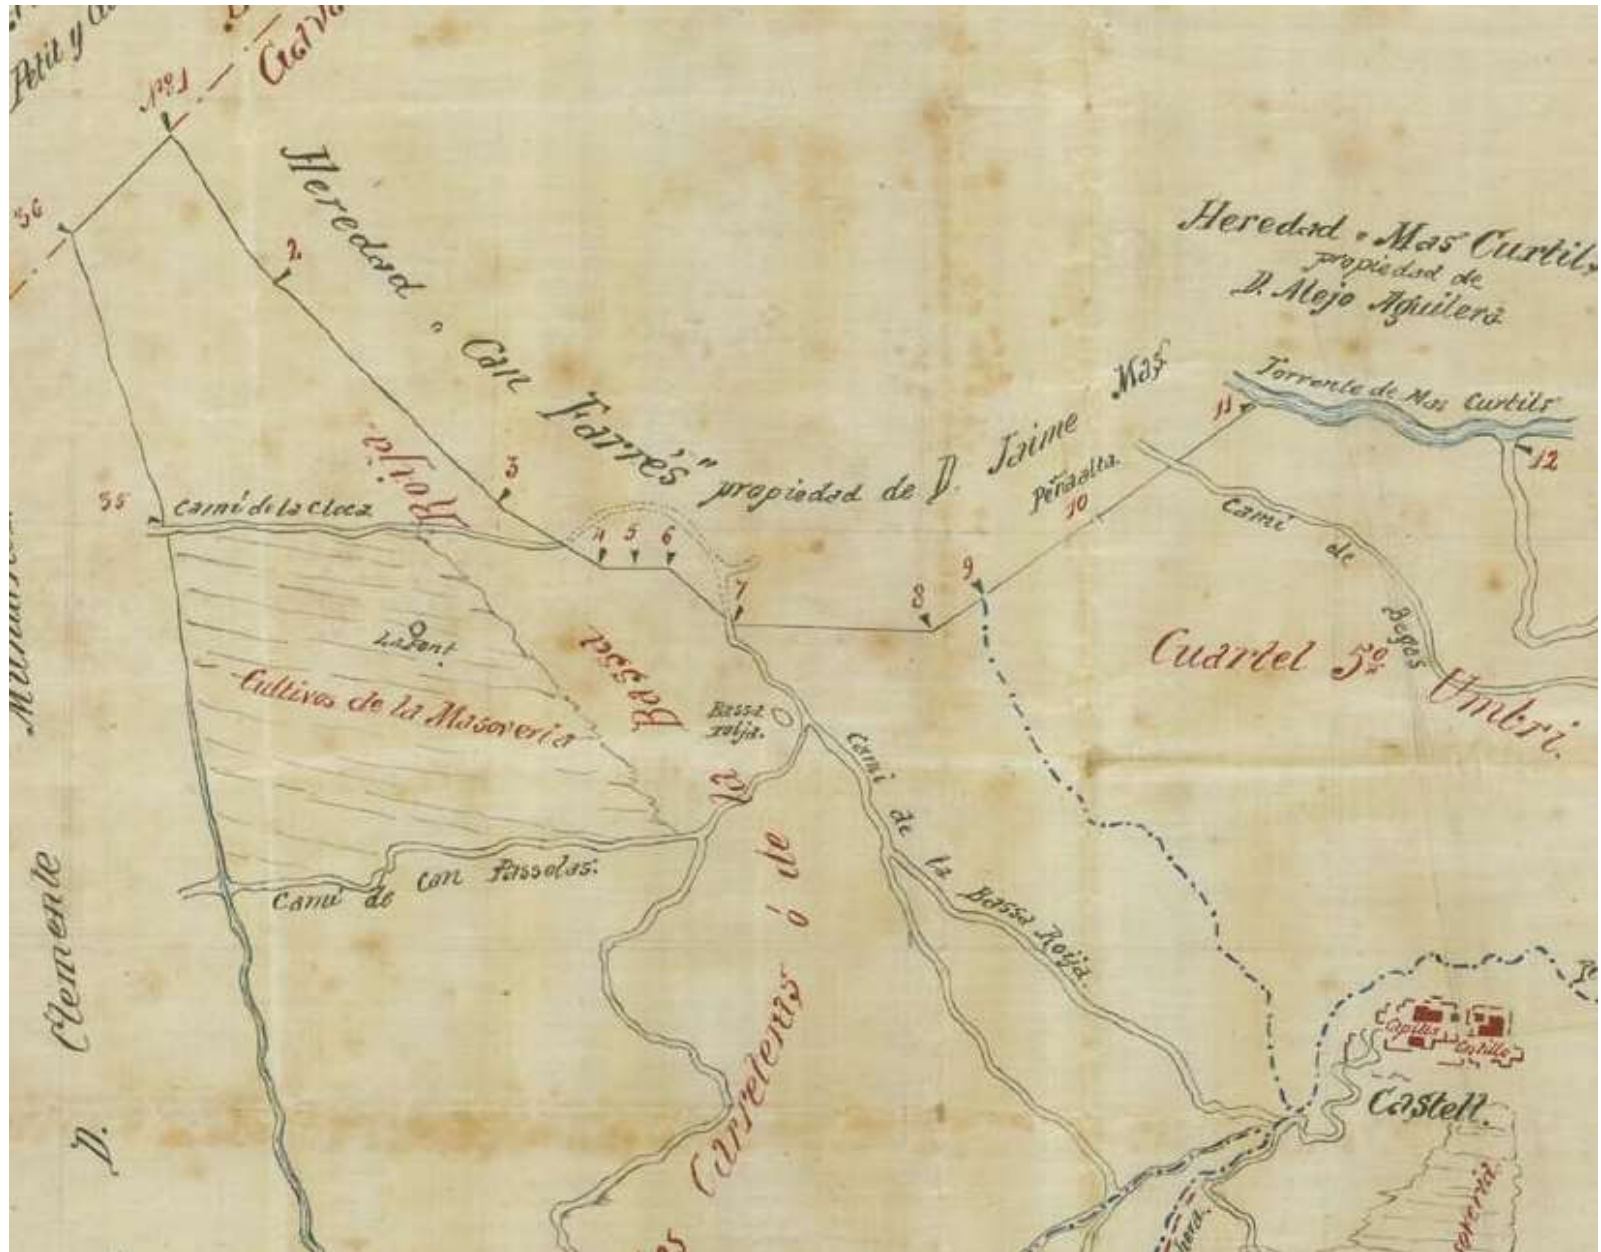 Petit y
Nº 1
56
2
Heredad "Can Farrés" propiedad de D. Jaime Mas
Heredad "Mas Curtils
propiedad de
D. Alejo Aguilera
Torrente de Mas Curtils
11
12
Peñaalta.
10
Camí de Begas
3
55
Camí de la Cloca
4
5
6
7
8
9
Cuartel 5º Umbri.
La Font.
Cultivos de la Masoveria
Bassa
roija.
Camí de la Bassa Roija.
Camí de Can Passolas.
Carreteras ó de la Bassa Roija
D. Clemente
Capilla
Castillo
Castell.